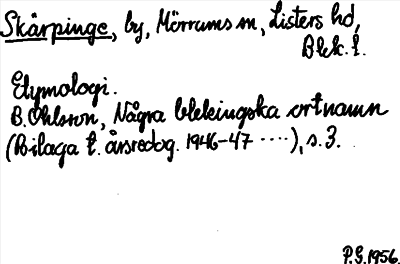 Skårpinge, by, Mörrums sn, Listers hd,
Blek. l.
Etymologi.
B. Ohlsson, Några blekingska ortnamn
(Bilaga t. årsredog. 1946-47 ....), s. 3.
P.G. 1956.